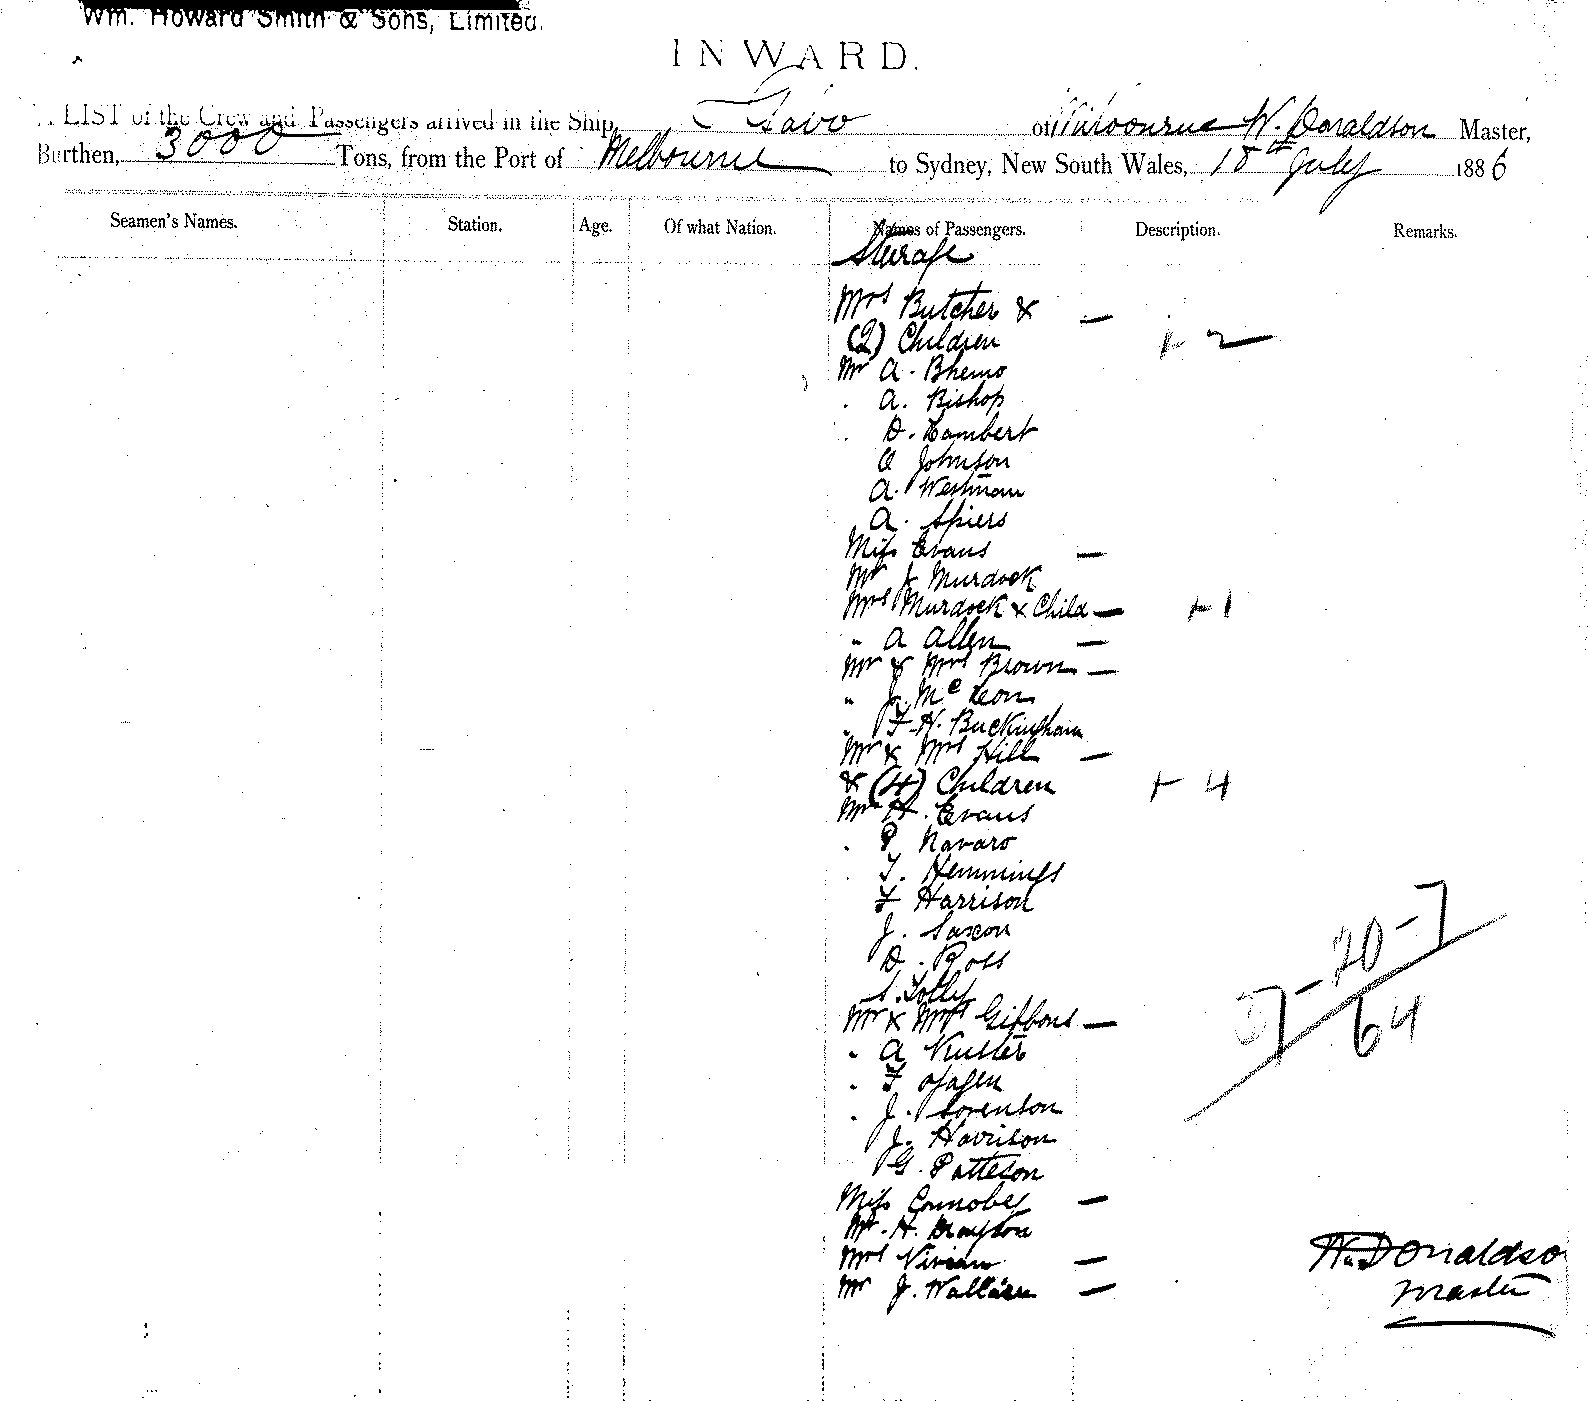 Wm. Howard Smith & Sons, Limited.
INWARD.
LIST of the Crew and Passengers arrived in the Ship of W. Donaldson Master,
Burthen, 3000 Tons, from the Port of Melbourne to Sydney, New South Wales, 18th July 1886
Seamen's Names. Station. Age. Of what Nation. Names of Passengers. Description. Remarks.
Steerage
Mrs Butcher & —
(2) Children + 2
Mr A. Bhemo
. A. Bishop
. D. Lambert
O Johnson
A. Westman
A. Spiers
Miss Evans —
Mr J Murdock
Mrs Murdock & Child — + 1
" A Allen —
Mr & Mrs Brown —
" J. Mc Keon
" F. H. Buckingham
Mr & Mrs Hill —
& (4) Children + 4
Mr H. Evans
. P. Navaro
. T. Hemmings
F Harrison
J. Saxon
D. Ross
S. Jolly
Mr & Mrs Gibbons —
" A Kuster
" F
" J. Sorenson
J. Harrison
G. Patteson
Miss Connobey —
Mr. H. Drayton
Mrs Vivian —
Mr J. —
37 - 20 - 7
64
W. Donaldso
Master